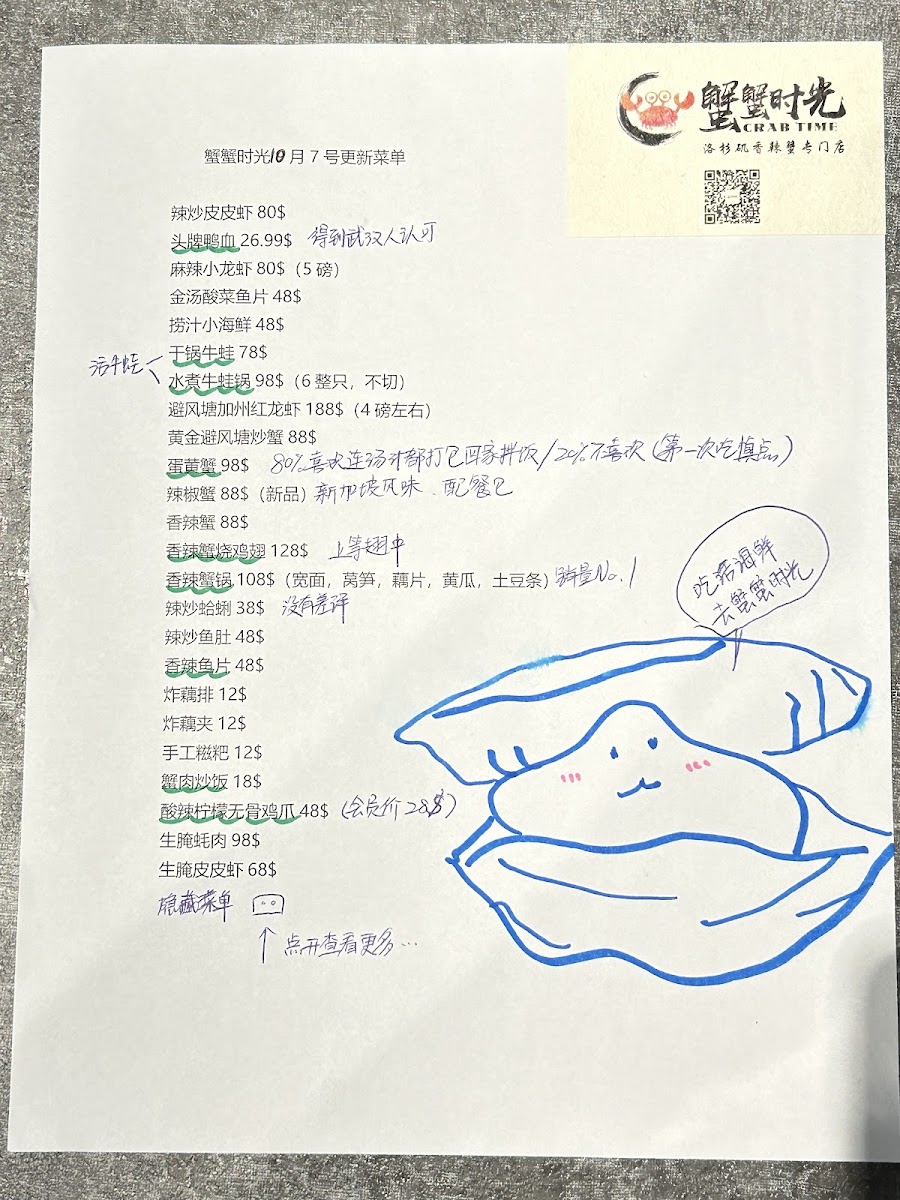 蟹蟹时光
CRAB TIME
洛杉矶香辣蟹专门店
蟹蟹时光10月7号更新菜单
辣炒皮皮虾 80$
头牌鸭血 26.99$ 得到武汉人认可
麻辣小龙虾 80$（5 磅）
金汤酸菜鱼片 48$
捞汁小海鲜 48$
干锅牛蛙 78$
活牛蛙
水煮牛蛙锅 98$（6 整只，不切）
避风塘加州红龙虾 188$（4 磅左右）
黄金避风塘炒蟹 88$
蛋黄蟹 98$ 80%喜欢连汤汁都打包回家拌饭/20%不喜欢（第一次吃慎点）
辣椒蟹 88$（新品）新加坡风味、配餐包
香辣蟹 88$
香辣蟹烧鸡翅 128$ 上等翅中
香辣蟹锅 108$（宽面，莴笋，藕片，黄瓜，土豆条）销量No.1
辣炒蛤蜊 38$ 没有差评
辣炒鱼肚 48$
香辣鱼片 48$
炸藕排 12$
炸藕夹 12$
手工糍粑 12$
蟹肉炒饭 18$
酸辣柠檬无骨鸡爪 48$（会员价 28$）
生腌蚝肉 98$
生腌皮皮虾 68$
隐藏菜单
点开查看更多…
吃活海鲜
去蟹蟹时光